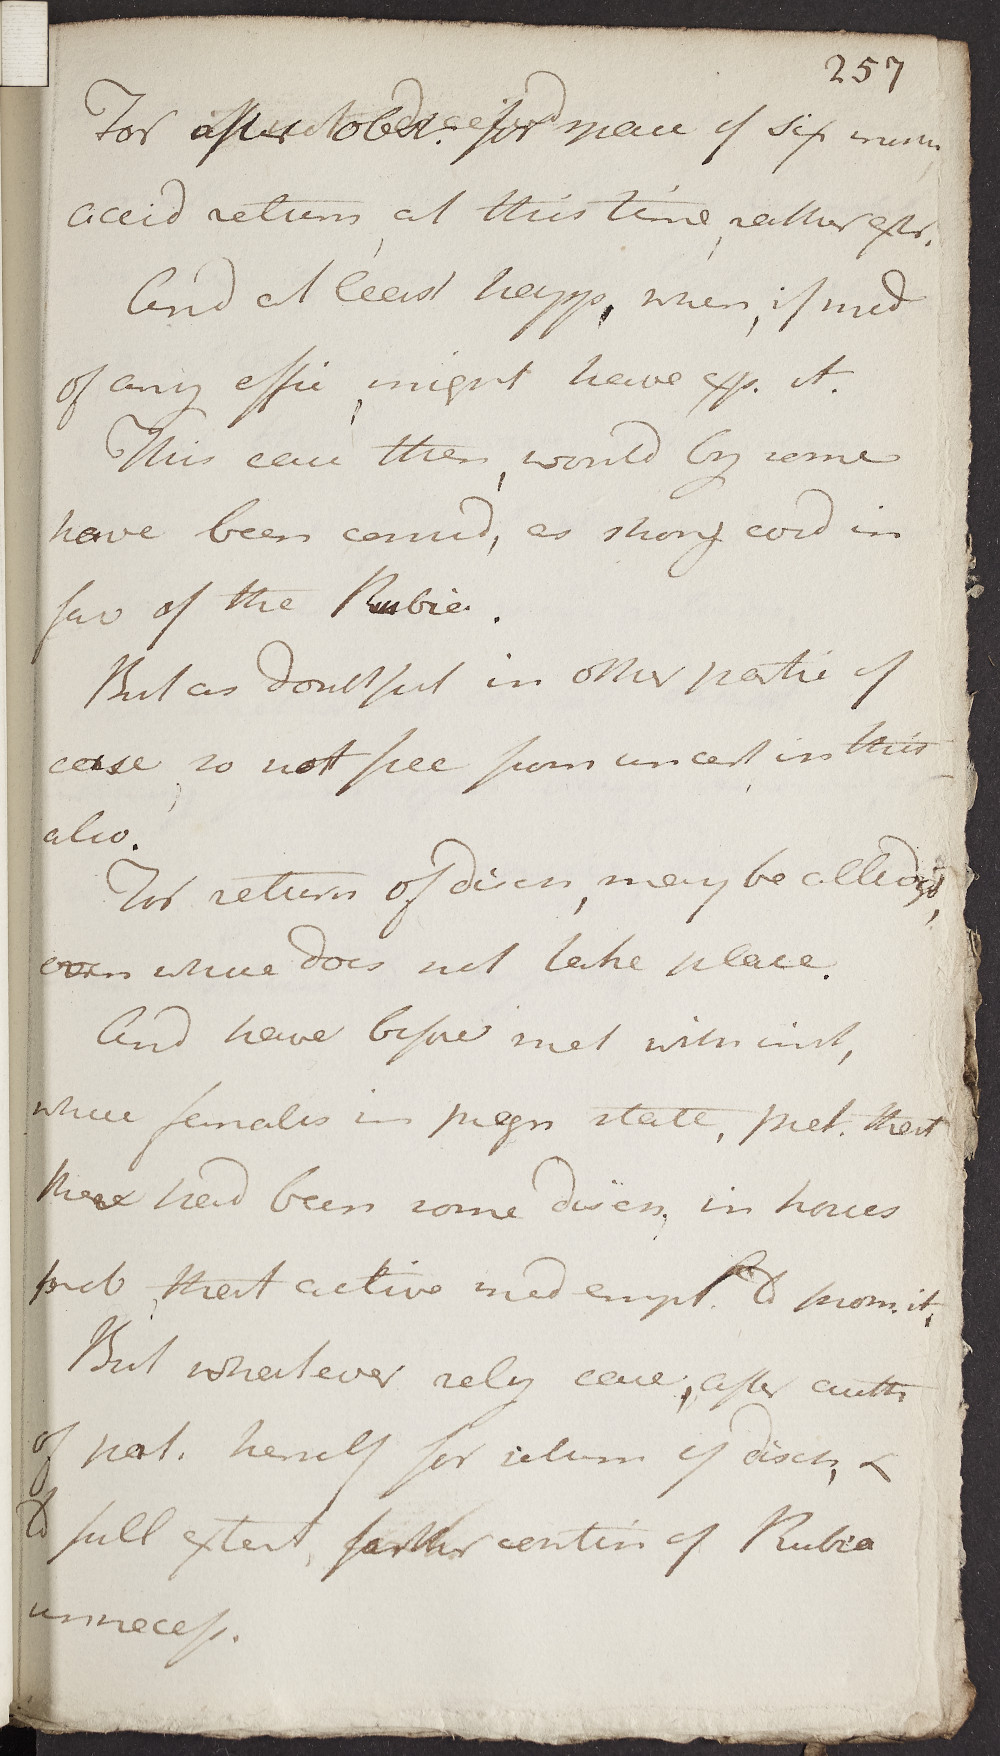 257
For after obst. for space of six mens,
accid return, at this time, rather extr.
And at least happ, when, if med
of any effic, might have exp. it.
This case then, would by some
have been consid, as strong evid in
fav of the Rubia.
But as doubtful in other partic of
case, so not free from uncert, in this
also.
For return of disch, may be alledgd,
even where does not take place.
And have before met with inst,
where females in pregn state, pret. that
there had been some disch, in hopes
prob, that active med empl. to prom. it.
But whatever rely case, after auth
of pat. herself for return of disch, &
to full extent, farther contin of Rubia
unnecess.